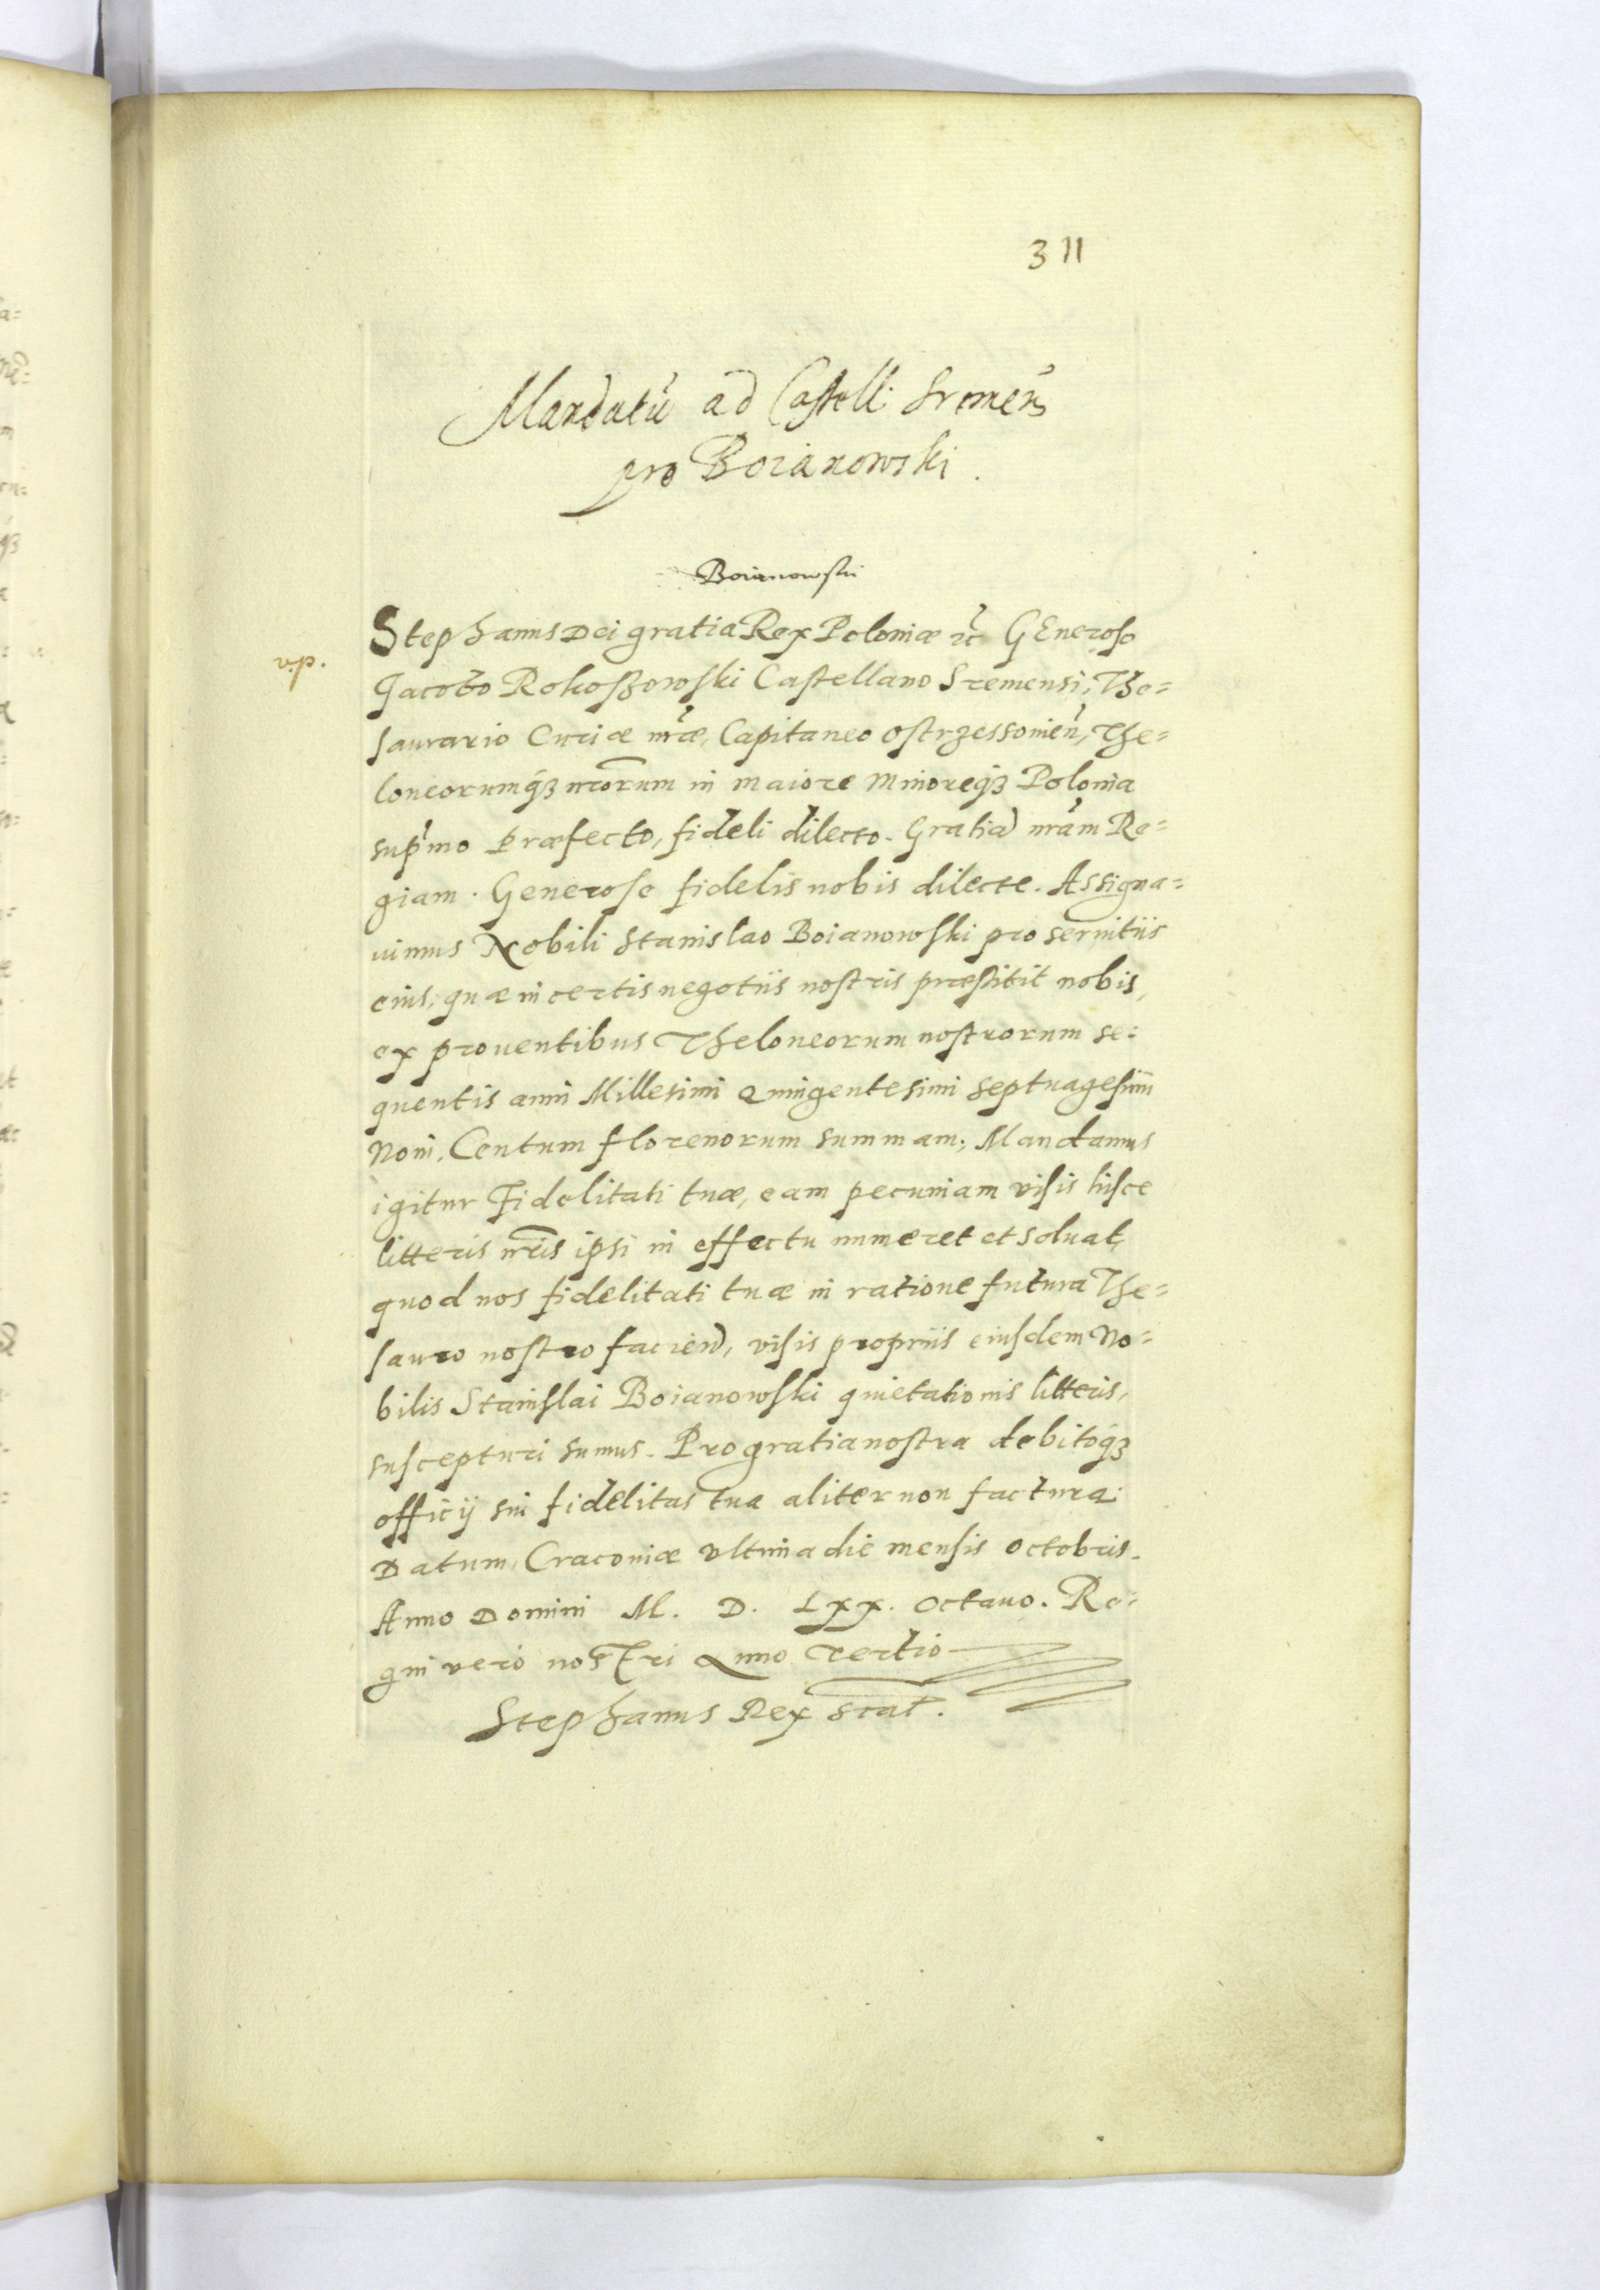 311
Mandatu ad Castell: Sremen̄
pro Boianowski.
Boianowski
Stephanus Dei gratia Rex Poloniæ &c̃ GEneroso
v.p.
Jacobo Rokoßowski Castellano Sremensi, The=
saurario Curiæ nr̃æ, Capitaneo ostrzessomien̄, The=
loneorumq́ꝫ nr̃orum in maiore Minoreq́ꝫ Polonia
supr̃mo Præfecto, fideli dilecto. Gratia nr̃am Re=
giam. Generose fidelis nobis dilecte. Assigna=
uimus Nobili Stanislao Boianowski pro seruitiis
eius, quæ in certis negotiis nostris præstitit nobis,
ex prouentibus Theloneorum nostrorum se:
quentis anni Millesimi Quingentesimi septuagesimi
Noni, Centum florenorum summam; Mandamus
igitur Fidelitati tuæ, eam pecuniam visis hisce
litteris nr̃is ipsi in effectu numeret et soluat,
quod nos fidelitati tuæ in ratione futura The=
sauro nostro facien̄, visis propriis eiusdem No=
bilis Stanislai Boianowski quietationis litteris,
suscepturi sumus. Pro gratia nostra debitoq́ꝫ
officij sui fidelitas tua aliter non factura.
Datum Cracouiæ vltima die mensis octobris.
Anno Domini M. D. Lxx. octauo. Re=
gni vero nostri Anno tertio
Stephanus Rex scat.